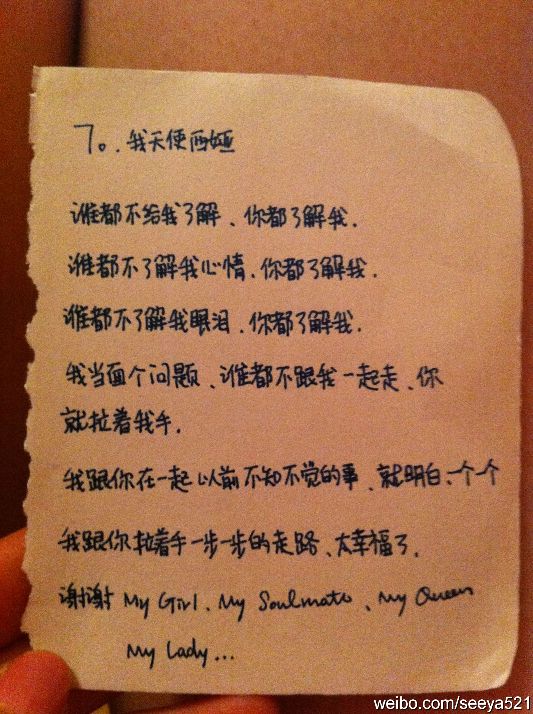 To. 我天使西娅
谁都不给我了解、你都了解我.
谁都不了解我心情、你都了解我.
谁都不了解我眼泪、你都了解我.
我当面个问题、谁都不跟我一起走、你
就拉着我手.
我跟你在一起以前不知不觉的事、就明白、一个一个
我跟你拉着手一步一步的走路、太幸福了.
谢谢 My Girl、My Soulmate、My Queen
My Lady...
weibo.com/seeya521